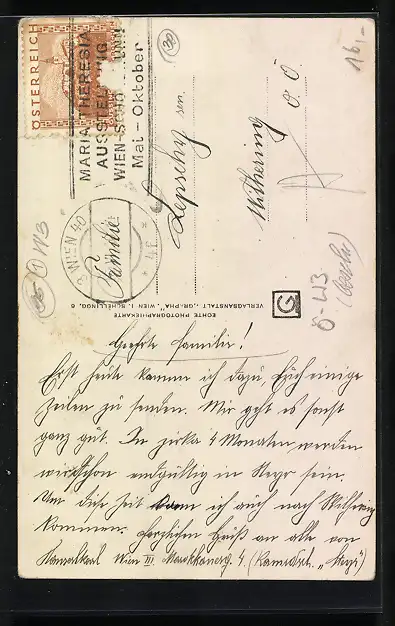 ÖSTERREICH
MARIA THERESIA
AUSSTELLUNG
WIEN-SCHÖNBRUNN
Mai - Oktober
WIEN 40
Familie
Lepschy sen.
Wilhering
O Ö
30
16,-
1 W3
Ö-W3
ECHTE PHOTOGRAPHIEKARTE
VERLAGSANSTALT „GR-PHA", WIEN I. SCHELLINGG. 6
G
Geehrte Familie!
Erst heute komme ich dazu, Euch einige
Zeilen zu senden. Mir geht es sonst
ganz gut. In zirka 4 Monaten werden
wir schon endgültig in Steyr sein.
Um diese Zeit kann ich auch nach Wilhering
kommen. Herzlichen Gruß an alle von
Wien III. Marokkanerg. 4 „Steyr")